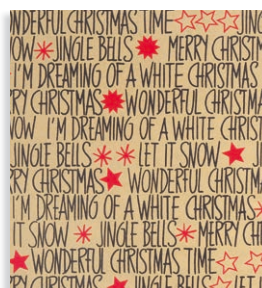 NDERFUL CHRISTMAS TIME JING
OW JINGLE BELLS MERRY CHRIST
I'M DREAMING OF A WHITE CHRISTMAS
RY CHRISTMAS WONDERFUL CHRISTMA
OW I'M DREAMING OF A WHITE CHRIST
JINGLE BELLS LET IT SNOW J
RY CHRISTMAS WONDERFUL CHRISTM
I'M DREAMING OF A WHITE CHRISTMAS
IT SNOW JINGLE BELLS MERRY CH
WONDERFUL CHRISTMAS TIME
RY CHRISTMAS JINGLE BELLS LET I